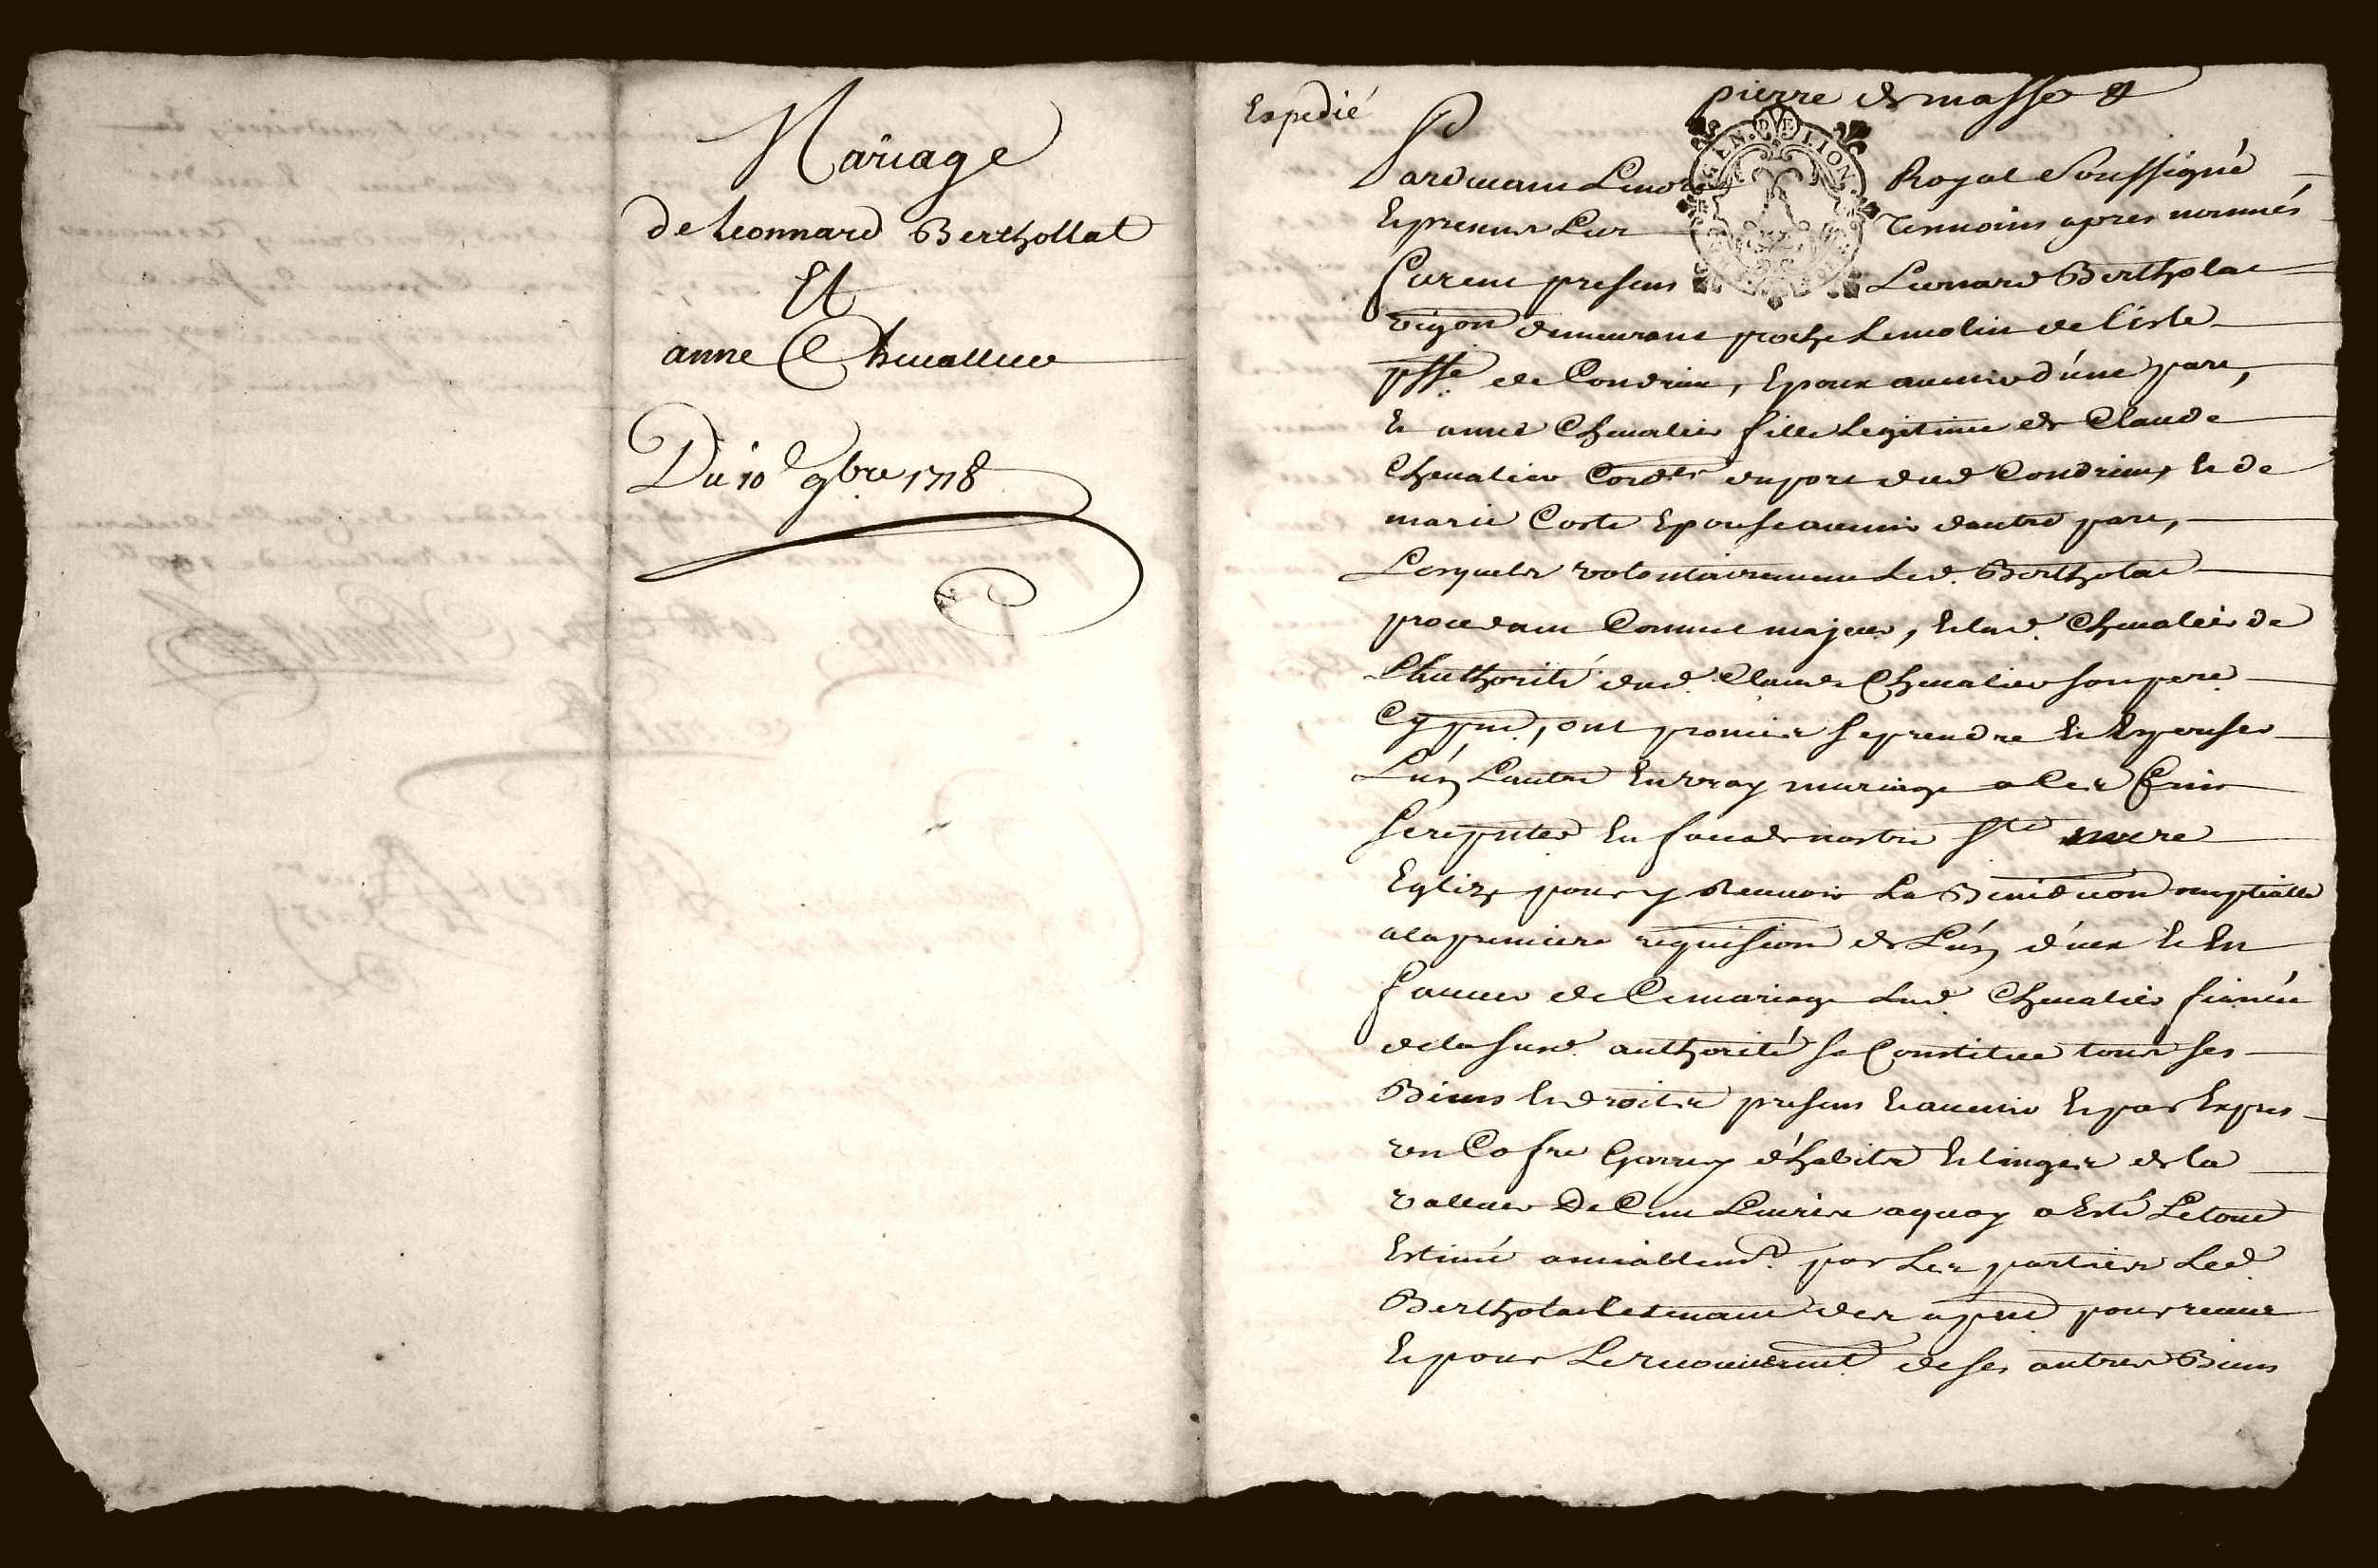 Mariage
de Leonnard Berthollat
Et
anne Chevallier
Du 10e 9bre 1718
Expedié
pierre de masso
GEN. DE LION
Pardevant Le no.re Royal Soussigné
Et presence Les Temoins apres nommés
furent presens Leonard Bertholat
vigon demeurant proche Le molin de L'isle
psse de Condrieu, Epoux avenir d'une part,
Et anne Chevalier fille Legitime de Claude
Chevalier Cordr du port dud Condrieu, Et de
marie Coste Epouse avenir d'autre part,
Lesquels volontairement Led. Bertholat
procedant Comme majeur, Et lad. Chevalier de
L'authorité dud. Claude Chevalier son pere
Cy pnt, ont promis Se prendre Et Espouser
L'un L'autre En vray mariage a Ces fins
Se repnter En face de nostre Ste mere
Eglize pour y Recevoir La Benediction nuptialle
a la premiere requisition de L'un d'eux Et En
faveur de Ce mariage Lad. Chevalier fiancée
de la Susd. authorité Se Constitue tous Ses
Biens Et droits presens Et avenir Et par Expres
un Cofre Garny d'habits Et linges de la
valleur De Cent Livres a quoy a Esté Le tout
Estimé amiablemt. par Les parties Led.
Bertholat pour
Et pour Le recouvremt de Ses autres Biens